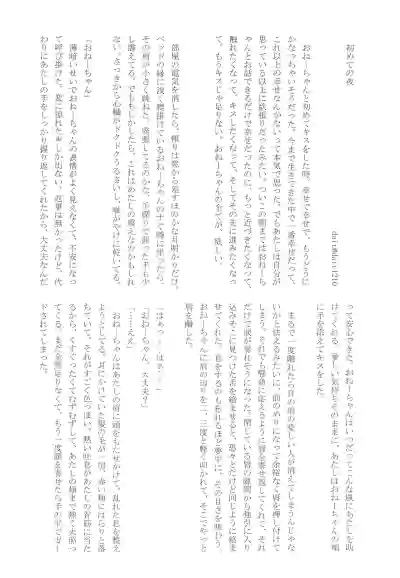 初めての夜
おねーちゃんと初めてキスをした時、幸せで幸せで、もうどうに
かなっちゃいそうだった。今まで生きてきた中で一番幸せだって、
これ以上の幸せなんかないって本気で思った。でもあたしは自分が
思っている以上に欲張りだったみたい。ついこの間まではおねーち
ゃんとお話できるだけで幸せだったのに、もっと近づきたくなって、
触れたくなって、キスしたくなって、そしてその先に進みたくなっ
て、もうキスじゃ足りない。おねーちゃんの全てが、欲しい。
部屋の電気を消したら、頼りは窓から差すほのかな月明かりだけ。
ベッドの縁に浅く腰掛けているおねーちゃんの
その肩が小さく跳ねた。緊張してるのかな。
し震えてる。でももしかしたら、これはあたしの震えなのかもしれ
ない。さっきから心臓がドクドクうるさいし、喉がやけに乾いてる。
「おねーちゃん」
薄暗いせいでおねーちゃんの表情がよく見えなくて、不安になっ
て呼び掛けた。
わりにあたしの手をしっかり握り返してくれたから、大丈夫なんだ
って安心できた。おねーちゃんはいつだってこんな風にあたしを助
けてくれる。愛しい気持ちそのままに、あたしはおねーちゃんの頬
に手を添えてキスをした。
まるで一度離れたら自分の前の愛しい人が消えてしまうんじゃな
いかと怯えるみたいに、前のめりになって余裕なく唇を押し付けて
しまう。それでも懸命に応えるように唇を寄せ返してくれて、それ
だけで涙が溢れそうになった。閉じている唇の隙間から強引に入り
込みそこに見つけた舌を絡ませると、恐々とだけど同じように絡ま
せてくれた。息をするのも忘れるほど夢中に、その甘さを味わう。
おねーちゃんに肩の辺りを二、三度と軽く叩かれて、そこでやっと
唇を離した。
「はぁっ…はぁ…」
「おねーちゃん、大丈夫？」
「……ええ」
おねーちゃんはあたしの肩に頭をもたせかけて、乱れた息を整え
ようとしてる。耳にかけていた髪の毛が一房、赤い頬にはらりと落
ちていて、それがすごく色っぽい。熱い吐息があたしの首筋に当た
るから、くすぐったくてむずむずして、あたしの頬まで熱く火照っ
てくる。まだまだ全然足りなくて、もう一度顔を寄せたら手の平でガー
ドされてしまった。